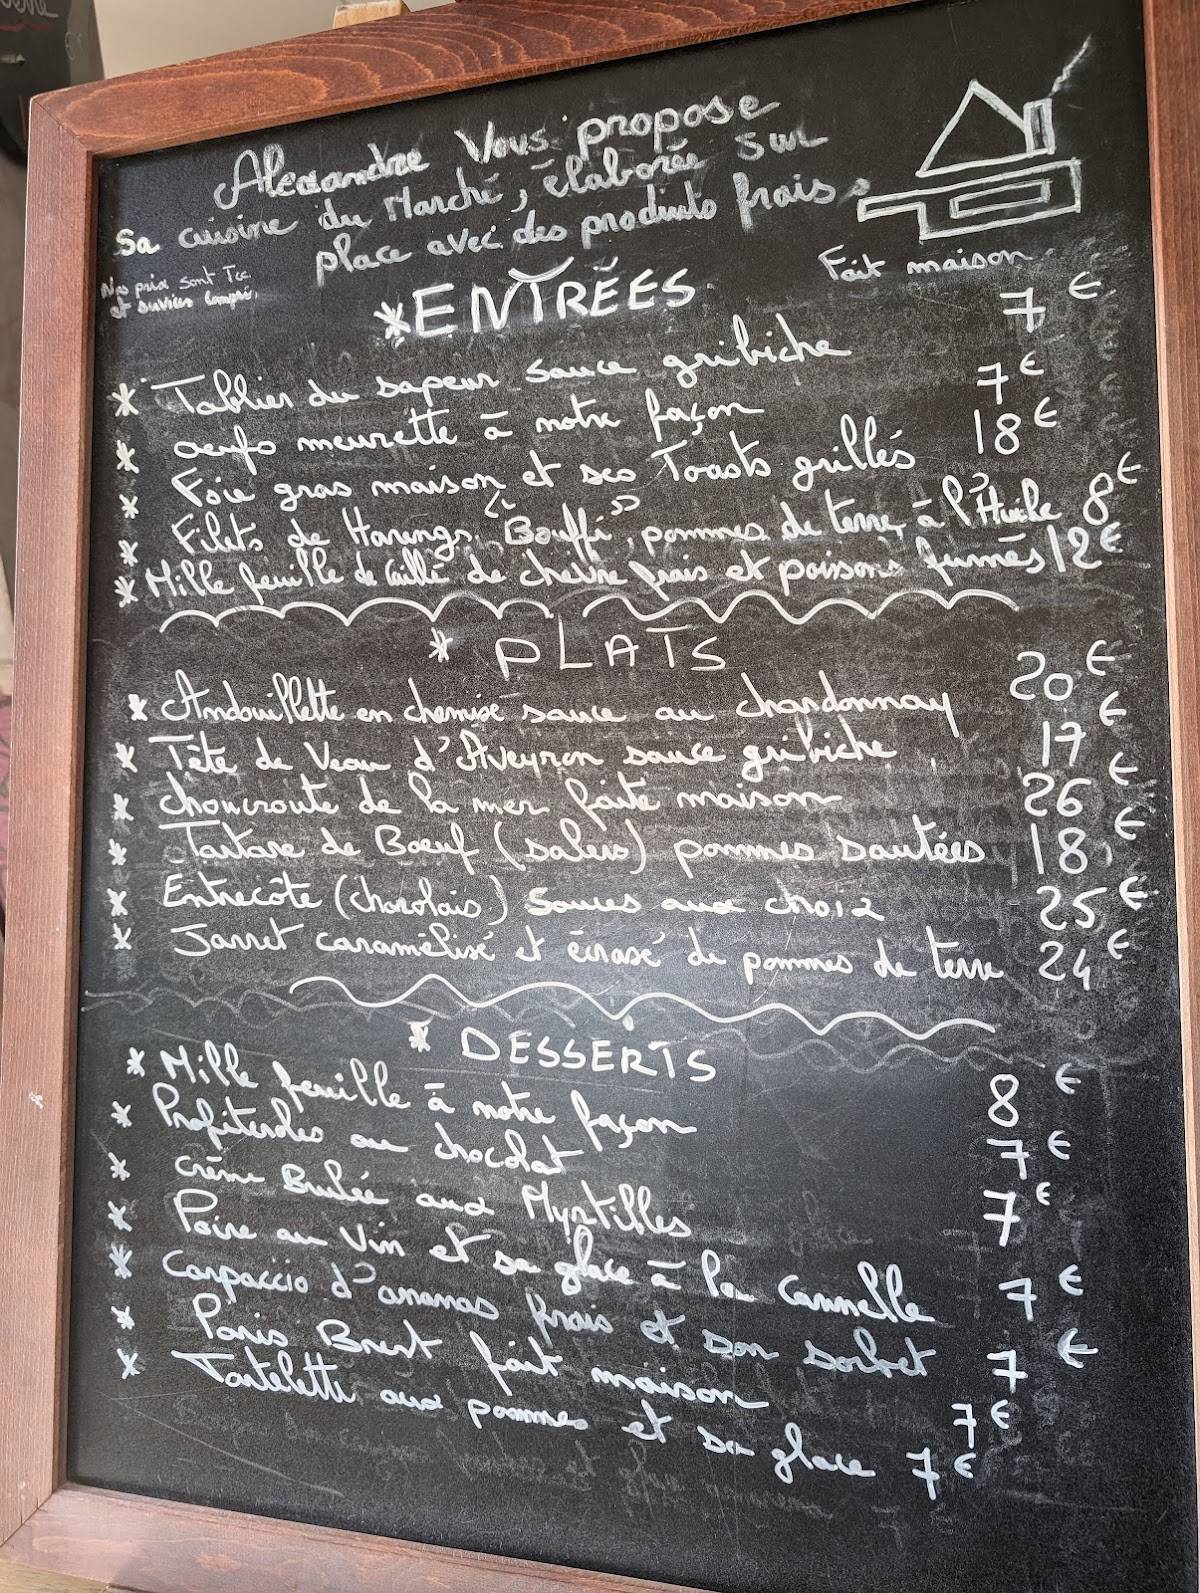 Alexandre Vous propose
Sa cuisine du Marché, élaborée sur
place avec des produits frais.
Fait maison
Nos prix sont TTC
et service compris.
* ENTRÉES
* Tablier du sapeur sauce gribiche 7€
* oeufs meurette à notre façon 7€
* Foie gras maison et ses Toasts grillés 18€
* Filets de Harengs "Bouffi", pommes de terre, à l'Huile 8€
* Mille feuille de Caillé de chèvre frais et poissons fumés 12€
* PLATS
* Andouillette en chemise sauce au chardonnay 20€
* Tête de Veau d'Aveyron sauce gribiche 17€
* choucroute de la mer faite maison 26€
* Tartare de Boeuf (salers) pommes sautées 18€
* Entrecôte (charolais) Sauces aux choix 25€
* Jarret caramélisé et écrasé de pommes de terre 24€
* DESSERTS
* Mille feuille à notre façon 8€
* Profiteroles au chocolat 7€
* Crème Brulée aux Myrtilles 7€
* Poire au Vin et sa glace à la Cannelle 7€
* Carpaccio d'ananas frais et son sorbet 7€
* Paris Brest fait maison 7€
* Tartelette aux pommes et sa glace 7€